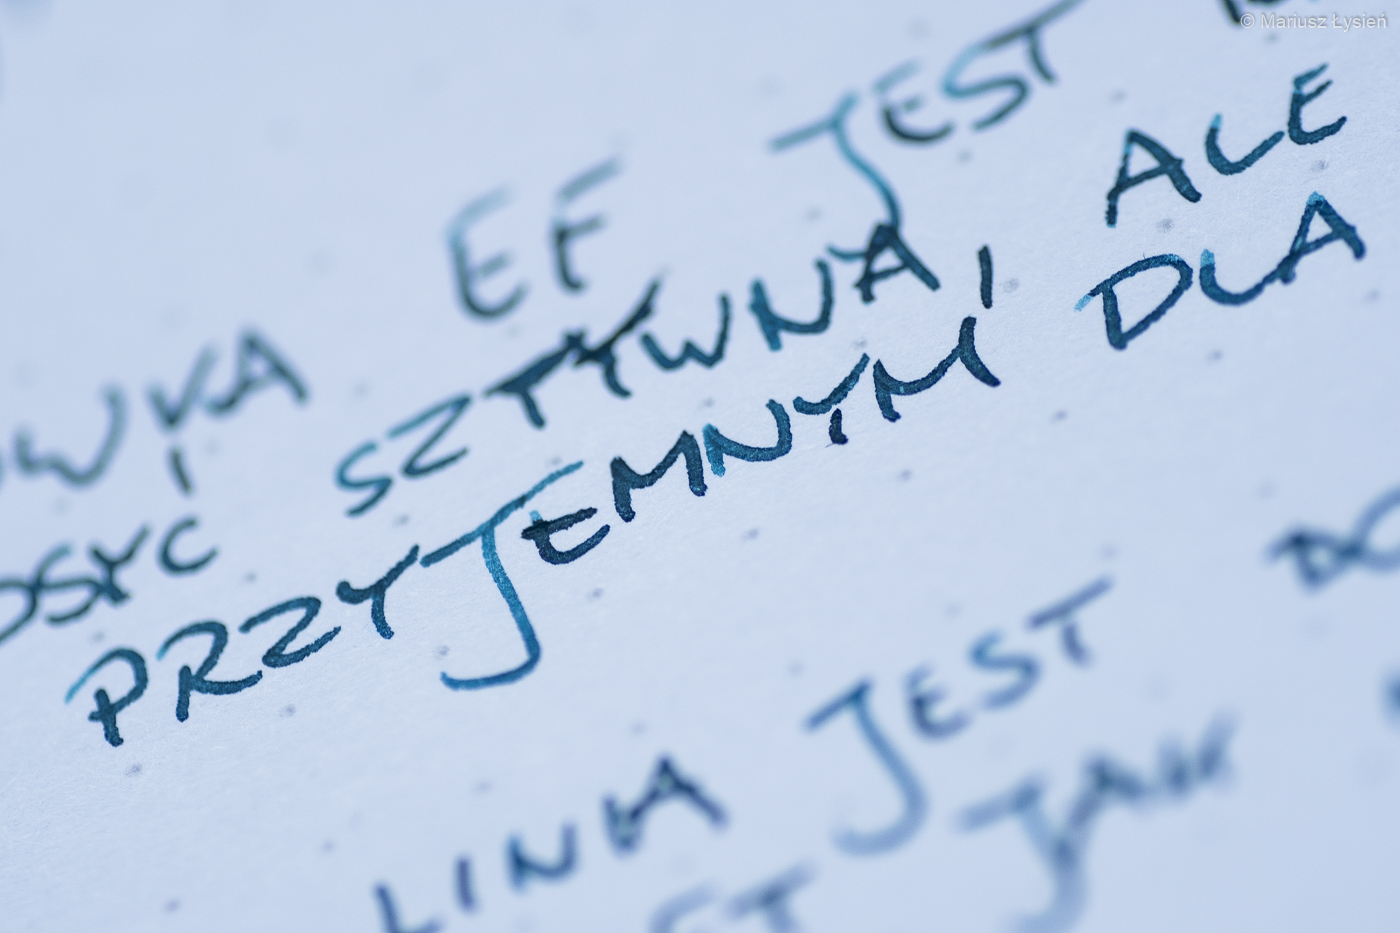 © Mariusz Łysień
EF JEST
SZTYWNA, ALE
PRZYJEMNYM DLA
LINIA JEST
JAK